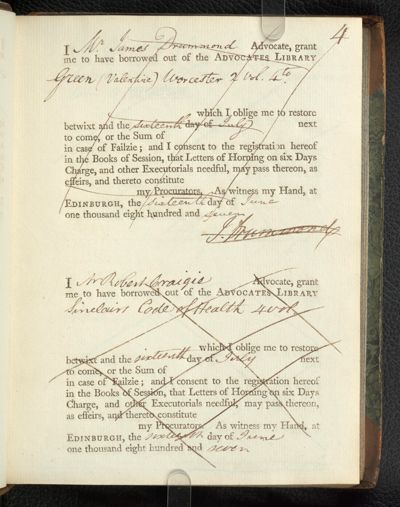 4
I Mr. James Drummond Advocate, grant
me to have borrowed out of the ADVOCATES LIBRARY
Green (Valentine) Worcester 2 Vol. 4to
which I oblige me to restore
betwixt and the sixteenth day of July next
to come, or the Sum of
in case of Failzie; and I consent to the registration hereof
in the Books of Session, that Letters of Horning on six Days
Charge, and other Executorials needful, may pass thereon, as
effeirs, and thereto constitute
my Procurators. As witness my Hand, at
EDINBURGH, the sixteenth day of June
one thousand eight hundred and seven
J. Drummond
I Mr Robert Craigie Advocate, grant
me to have borrowed out of the ADVOCATES LIBRARY
Sinclairs Code of Health 4 vol
which I oblige me to restore
betwixt and the sixteenth day of July next
to come, or the Sum of
in case of Failzie; and I consent to the registration hereof
in the Books of Session, that Letters of Horning on six Days
Charge, and other Executorials needful, may pass thereon,
as effeirs, and thereto constitute
my Procurators. As witness my Hand, at
EDINBURGH, the sixteenth day of June
one thousand eight hundred and seven